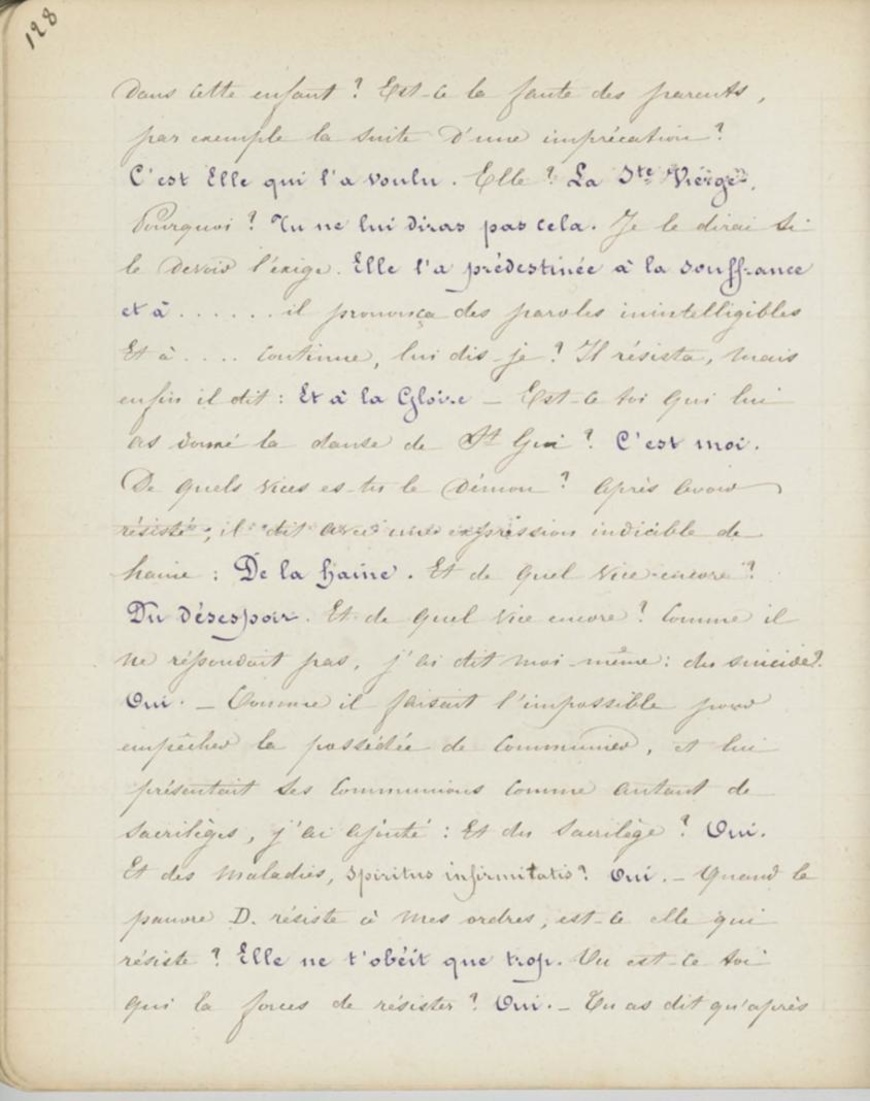 128
Dans cette enfant ? Est-ce la faute des parents,
par exemple la suite d'une imprécation ?
C'est Elle qui l'a voulu. Elle ? La Ste Vierge.
Pourquoi ? Tu ne lui diras pas cela. Je le dirai si
le devoir l'exige. Elle l'a prédestinée à la souffrance
et à ...... il prononça des paroles inintelligibles
Et à .... continue, lui dis-je ? Il résista, mais
enfin il dit : Et à la Gloire – Est-ce toi qui lui
as donné la danse de St Gui ? C'est moi.
De quels vices es-tu le démon ? Après avoir
résisté, il dit avec une expression indicible de
haine : De la haine. Et de quel vice encore ?
Du désespoir. Et de quel vice encore ? Comme il
ne répondait pas, j'ai dit moi-même : du suicide ?
Oui. – Comme il faisait l'impossible pour
empêcher la possédée de communier, et lui
présentait ses communions comme autant de
sacrilèges, j'ai ajouté : Et du sacrilège ? Oui.
Et des maladies, spiritus infirmitatis ? Oui. – Quand la
pauvre D. résiste à mes ordres, est-ce elle qui
résiste ? Elle ne t'obéit que trop. Ou est-ce toi
qui la forces de résister ? Oui. – Tu as dit qu'après